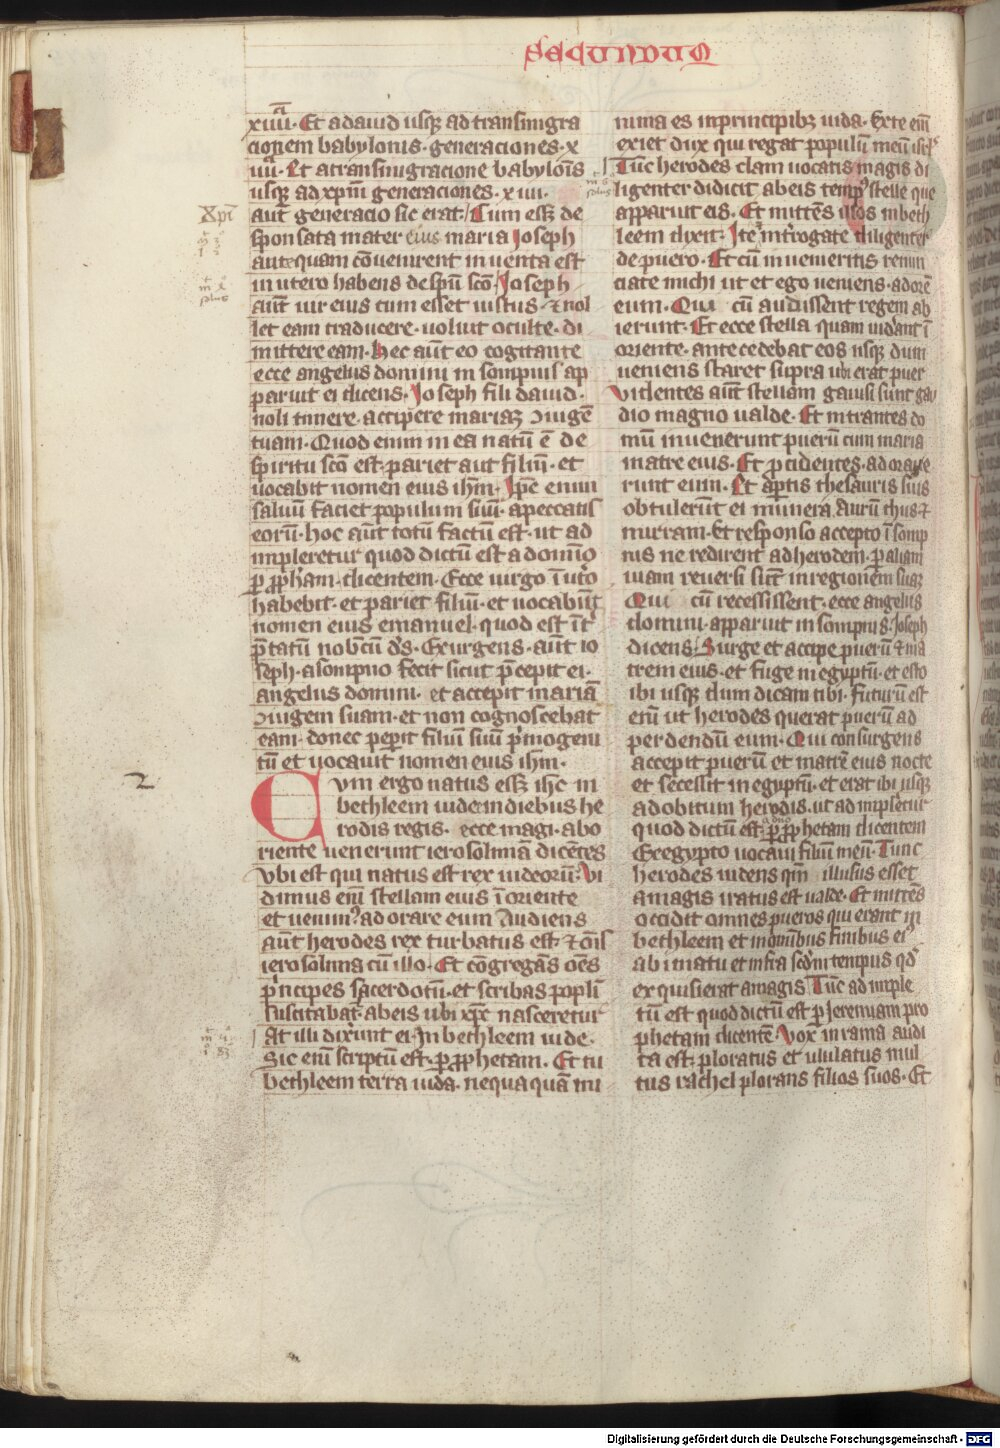 Secundum
xiiii. Et a dauid usqꝫ ad transmigra
cionem babylonis. generaciones. x
iiii. Et a transmigracione babylōis
usqꝫ ad xpm̄ generaciones. x iiii.
Xpi
aut̄ generacio sic erat. Cum ess̄ de
sponsata mater eius maria Joseph
ante quam cōuenirent inuenta est
in utero habens de sp̄u sc̄o. Joseph
aūt uir eius cum esset iustus. ⁊ nol
let eam traducere. uoluit oculte. di
mittere eam. Hec aūt eo cogitante
ecce angelus domini in sompnis ap
paruit ei dicens. Joseph fili dauid.
noli timere. accipere mariaꝫ ꝯiugē
tuam. Quod enim in ea natū ē de
spiritu sc̄o est. pariet aut̄ filiū. et
uocabit nomen eius ih̄m. Ip̄e enim
saluū faciet populum suū. a peccatis
eorū. hoc aūt totū factū est. ut ad
impleretur quod dictū est a domino
ꝑ ꝓph̄am. dicentem. Ecce uirgo ī ut̄o
habebit. et pariet filiū. et uocabūt
nomen eius emanuel. quod est īt̄
p̄tatū nobc̄ū dꝰs. Exurgens. aūt io
seph. a sompno fecit sicut p̄cepit ei.
angelus domini. et accepit mariā
ꝯiugem suam. et non cognoscebat
eam. donec peperit filiū suū p̄mogeni
tū et uocauit nomen eius ih̄m.
2
Cum ergo natus ess̄ ih̄c in
bethleem iude in diebus he
rodis regis. ecce magi. abo
riente uenerunt ierosolimā dicētes
Vbi est qui natus est rex iudeorū. Vi
dimus enī stellam eius ī oriente
et uenimꝰ ad orare eum Audiens
aūt herodes rex turbatus est. ⁊ om̄s
ierosolima cū illo. Et cōgregās oēs
p̄ncipes sacerdotū. et scribas popli
suscitabat. ab eis ubi xp̄c nasceretur
At illi dixerunt ei. In bethleem iude.
Sic enī scriptū est. ꝑ ꝓphetam. Et tu
bethleem terra iuda. nequaquā mi
nima es in principibꝫ iuda. Ex te enī
exiet dux qui regat populū meū isrl̄
Tūc herodes clam uocatis magis di
ligenter didicit ab eis tempꝰ stelle que
apparuit eis. Et mittēs illos in beth
leem dixit. Ite īterrogate diligenter
de puero. Et cū inueneritis renun
ciate michi ut et ego ueniens. adorē
eum. Qui cū audissent regem ab
ierunt. Et ecce stella quam uiderant ī
oriente. antecedebat eos usqꝫ dum
ueniens staret supra ubi erat puer
Videntes aūt stellam gauisi sunt gau
dio magno ualde. Et intrantes do
mū inuenerunt puerū cum maria
matre eius. Et ꝓcidentes. adoraue
runt eum. Et ap̄tis thesauris suis
obtulerūt ei munera. Aurū thus ⁊
mirram. Et responso accepto ī somp
nis ne redirent ad herodem. ꝑ aliam
uiam reuersi sūt in regionem suaꝫ
Qui cū recessissent. ecce angelus
domini. apparuit in sompnis. Joseph
dicens. Surge et accipe puerū ⁊ ma
trem eius. et fuge in egyptū. et esto
ibi usqꝫ dum dicam tibi. Futurū est
enī ut herodes querat puerū ad
perdendū eum. Qui consurgens
accepit puerū et matrē eius nocte
et secessit in egyptū. et erat ibi usqꝫ
ad obitum herodis. ut ad impleretur
quod dictū est a dn̄o ꝑ ꝓphetam dicentem
Ex egypto uocaui filiū meū. Tunc
herodes uidens qm̄ illusus esset
a magis iratus est ualde. Et mittēs
occidit omnes pueros qui erant in
bethleem et in omnibus finibus eiꝰ
a bimatu et infra scdm̄ tempus qd̄
exquisierat a magis. Tūc ad imple
tū est quod dictū est ꝑ Jeremiam pro
phetam dicentē. Vox in rama audi
ta est. ploratus et ululatus mul
tus rachel plorans filios suos. Et
Digitalisierung gefördert durch die Deutsche Forschungsgemeinschaft - DFG